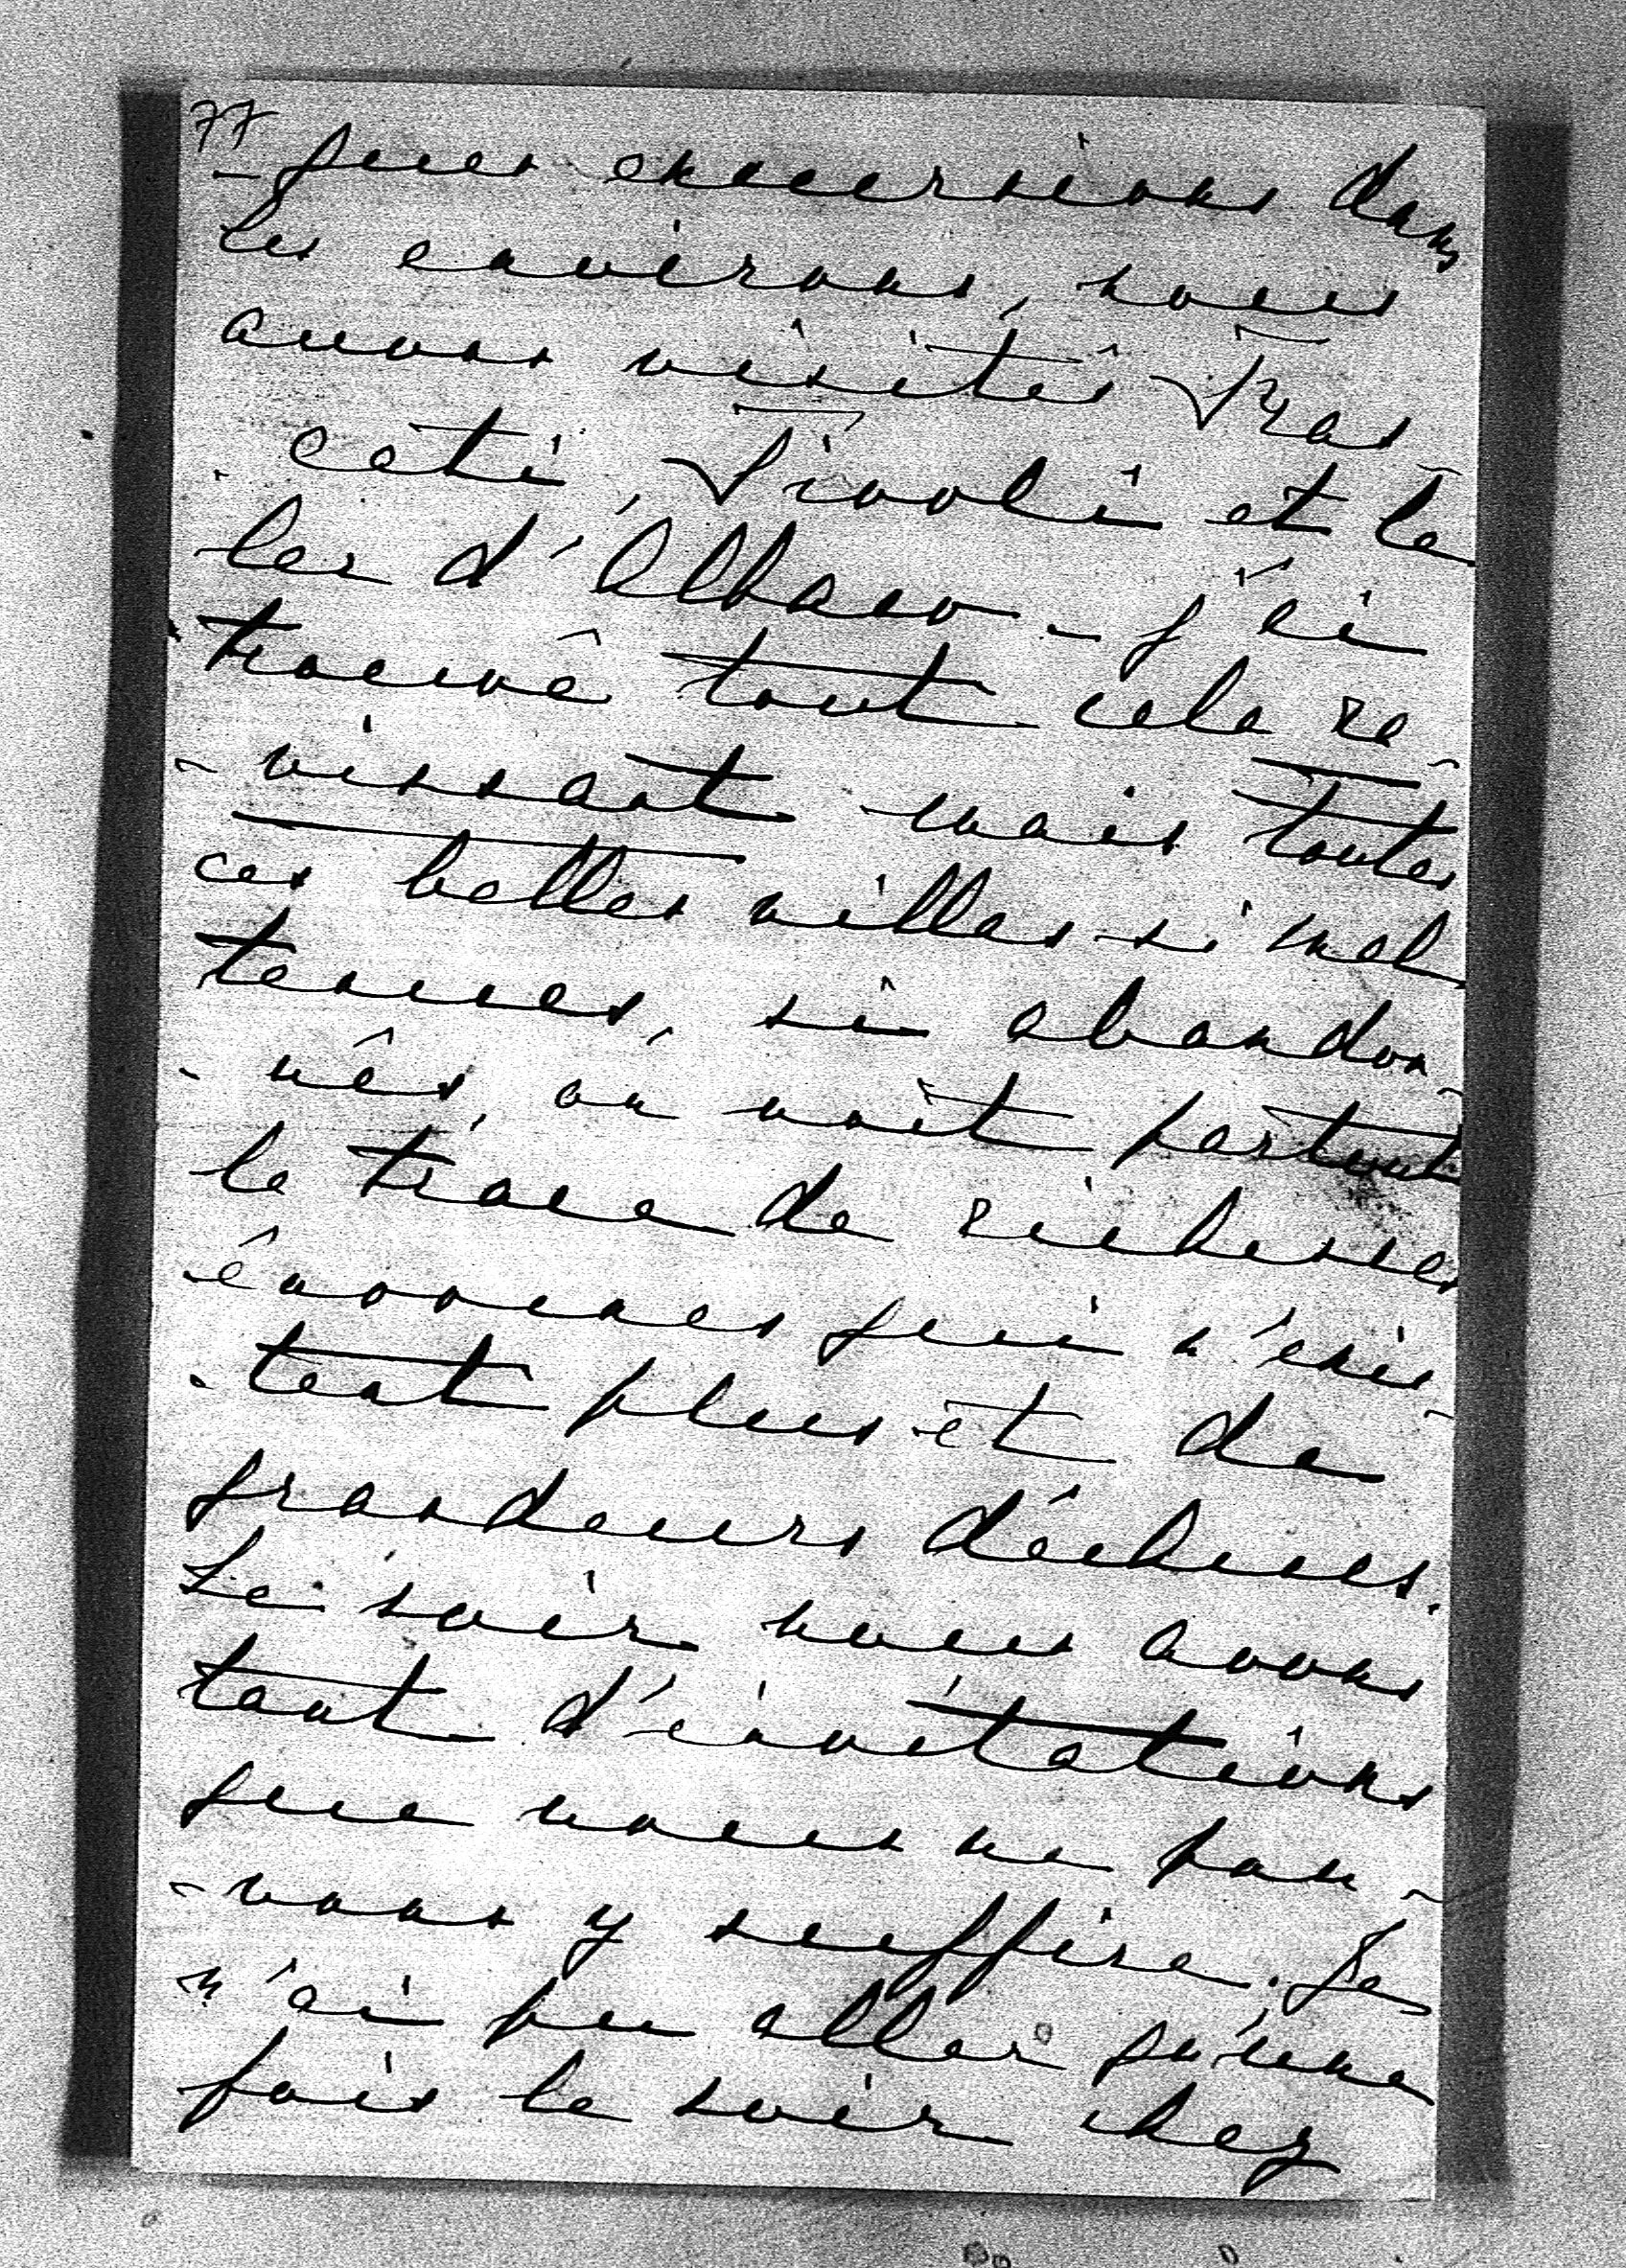 77
-ques excursions dans
les environs, nous
avons visités Fras
-cati, Tivoli et le
lac d'Albano - j'ai
trouvé tout cela ra-
-vissant mais toutes
ces belles villas si mal
tenues, si abandon-
-nés, on voit partout
la trace de richesses
énormes qui n'exis-
-tent plus et de
grandeurs déchues.
Le soir nous avons
tant d'invitations
que nous ne pou-
-vons y suffire. Je
n'ai pu aller qu'une
fois le soir chez